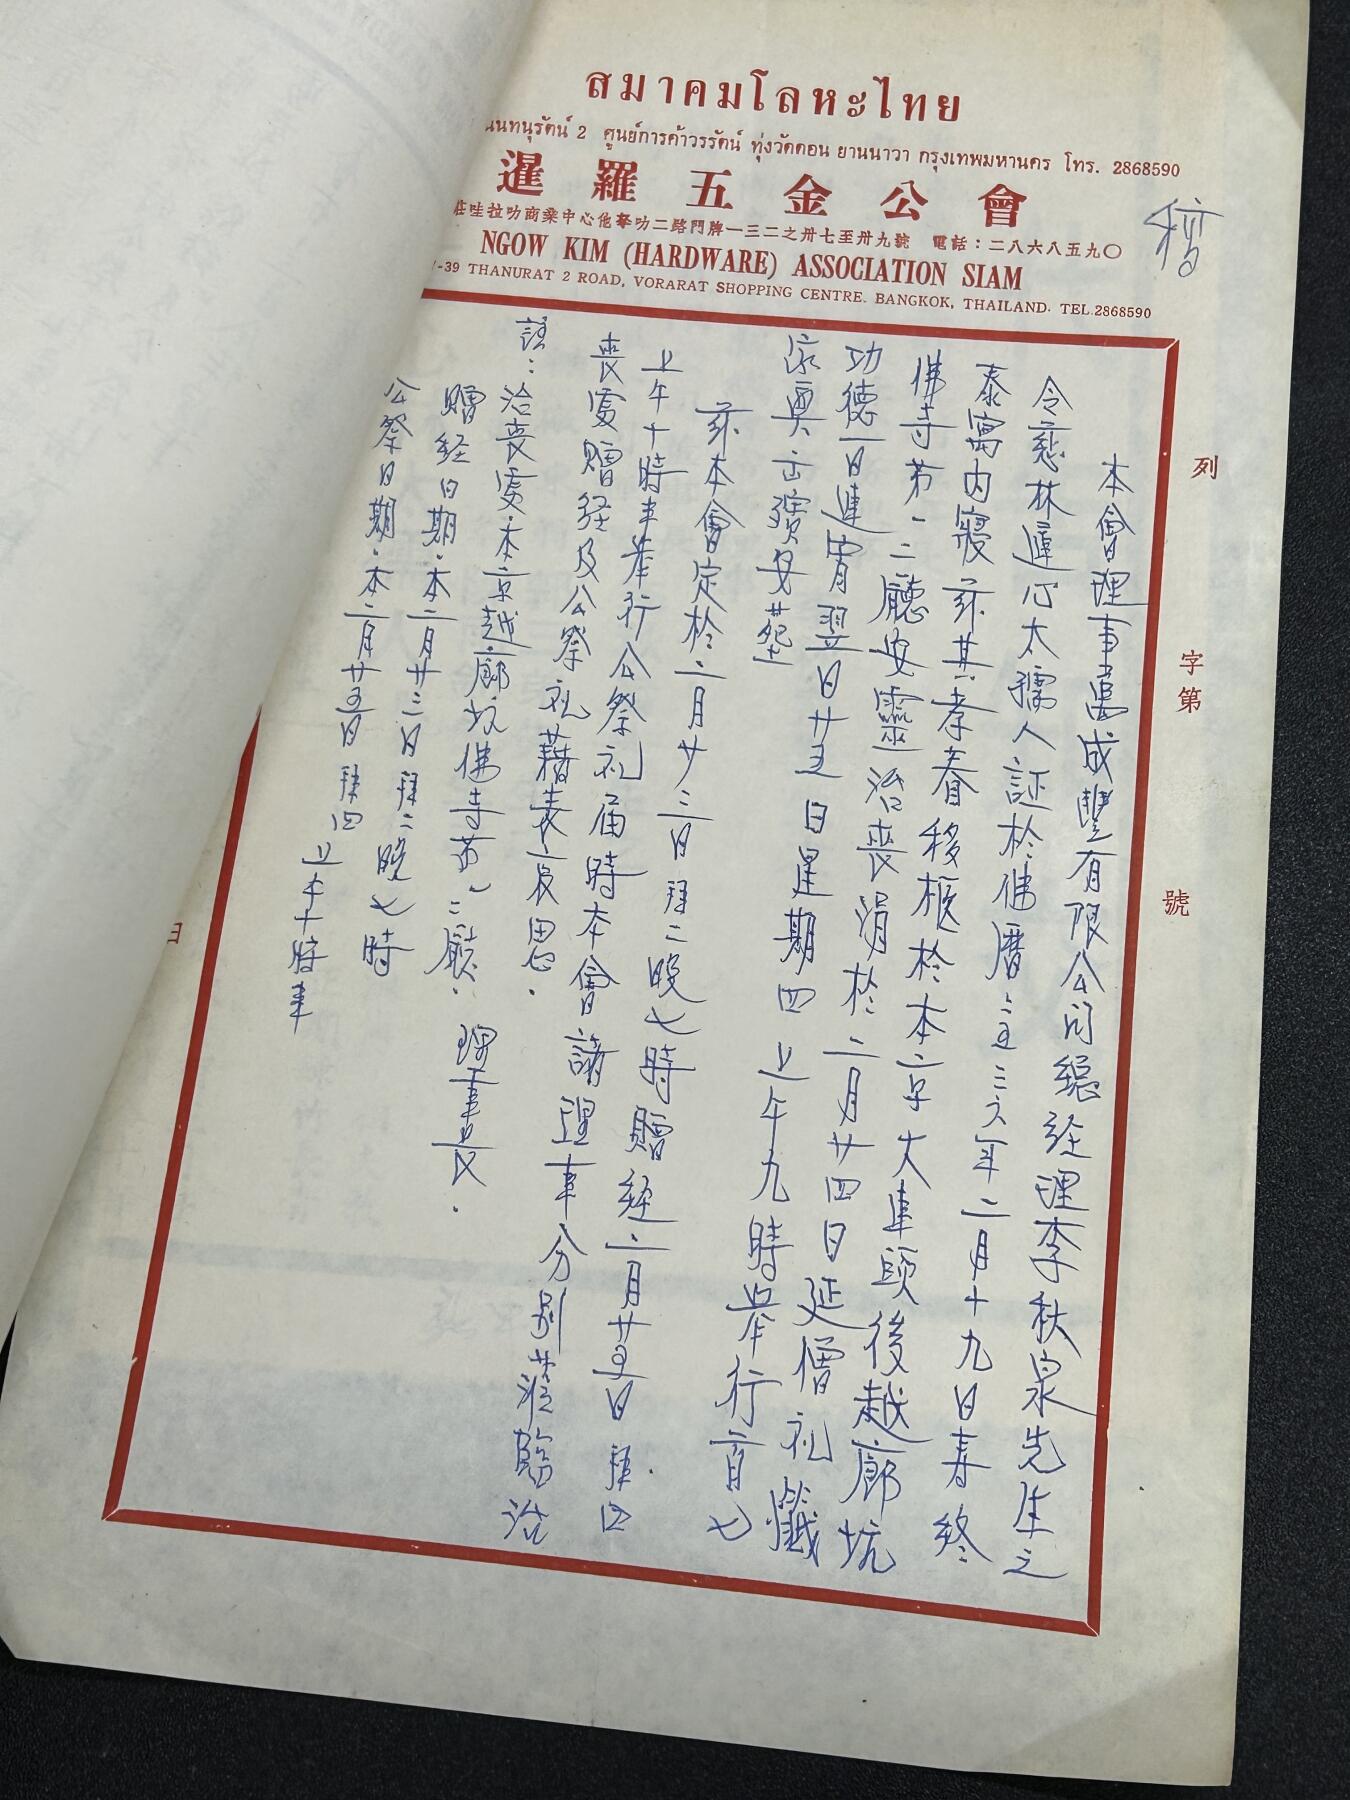 สมาคมโลหะไทย
นนทนุรัตน์ 2 ศูนย์การค้าวรรัตน์ ทุ่งวัดดอน ยานนาวา กรุงเทพมหานคร โทร. 2868590
暹羅五金公會
莊哇拉叻商業中心他拏叻二路門牌一三二之卅七至卅九號 電話：二八六八五九〇
NGOW KIM (HARDWARE) ASSOCIATION SIAM
-39 THANURAT 2 ROAD, VORARAT SHOPPING CENTRE. BANGKOK, THAILAND. TEL.2868590
稿
列 字第 號
本會理事萬成豐有限公司總經理李秋泉先生之
令慈林蓮心太孺人証於佛曆二五三六年二月十九日壽終
泰寓內寢茲其孝眷移柩於本京大車頭後越廊坑
佛寺第一二廳安靈治喪涓於二月廿四日延僧礼懺
功德一日連宵翌日廿五日星期四上午九時舉行首七
家奠出殯安葬
茲本會定於二月廿三日拜二晚七時贈經二月廿五日拜四
上午十時半舉行公祭礼屆時本會諸理事分別蒞臨治
喪處贈經及公祭礼藉表哀思.
理事長.
註：治喪處.本京越廊坑佛寺第一二廳.
贈經日期.本二月廿三日拜二晚七時
公祭日期.本二月廿五日拜四上午十時半
日